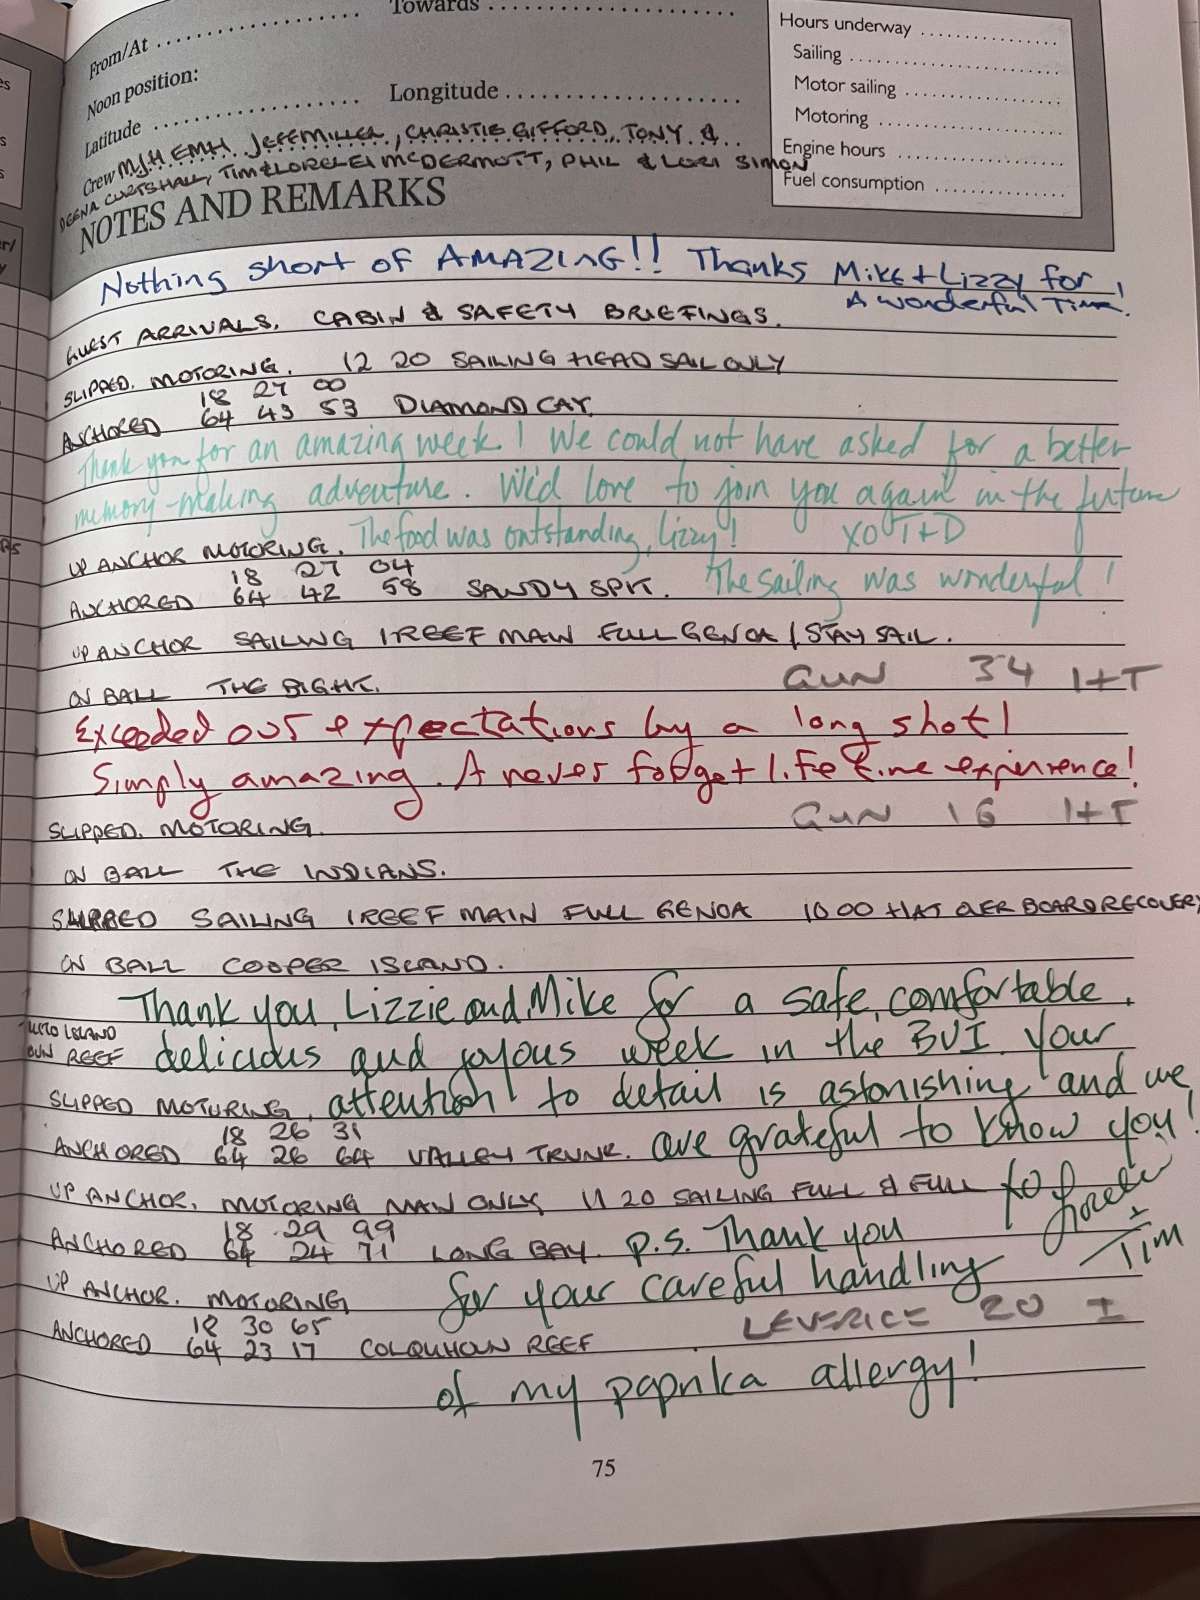 Towards
From/At
Noon position:
Latitude
Longitude
Hours underway
Sailing
Motor sailing
Motoring
Engine hours
Fuel consumption
Crew MJH EMH JEFF MILLER, CHRISTIE GIFFORD, TONY &
DEENA CURTSHALL, TIM & LORELEI MCDERMOTT, PHIL & LORI SIMON
NOTES AND REMARKS
Nothing short of AMAZING!! Thanks Mike + Lizzy for
A wonderful Time!
GUEST ARRIVALS. CABIN & SAFETY BRIEFINGS.
SLIPPED. MOTORING. 12 20 SAILING HEAD SAIL ONLY
18 27 00
ANCHORED 64 43 53 DIAMOND CAY.
Thank you for an amazing week! We could not have asked for a better
memory-making adventure. We'd love to join you again in the future
UP ANCHOR MOTORING. The food was outstanding, Lizzy! XO T+D
18 27 04
ANCHORED 64 42 58 SANDY SPIT. The sailing was wonderful!
UP ANCHOR SAILING 1 REEF MAIN FULL GENOA / STAY SAIL.
ON BALL THE BIGHT. GUN 34 I+T
Exceeded our expectations by a long shot!
Simply amazing. A never forget life time experience!
SLIPPED. MOTORING. GUN 16 I+T
ON BALL THE INDIANS.
SLIPPED SAILING 1 REEF MAIN FULL GENOA 10 00 HAT OVER BOARD RECOVERY
ON BALL COOPER ISLAND.
Thank you, Lizzie and Mike for a safe, comfortable,
ISLAND
REEF delicious and joyous week in the BVI. Your
SLIPPED MOTORING. attention to detail is astonishing and we
18 26 31
ANCHORED 64 26 64 VALLEY TRUNK. are grateful to know you!
UP ANCHOR. MOTORING MAIN ONLY, 11 20 SAILING FULL & FULL XO Lorelei
18 29 99
ANCHORED 64 24 71 LONG BAY. P.S. Thank you + Tim
UP ANCHOR. MOTORING for your careful handling
18 30 65
ANCHORED 64 23 17 COLQUHOUN REEF LEVERICE 20 I
of my paprika allergy!
75